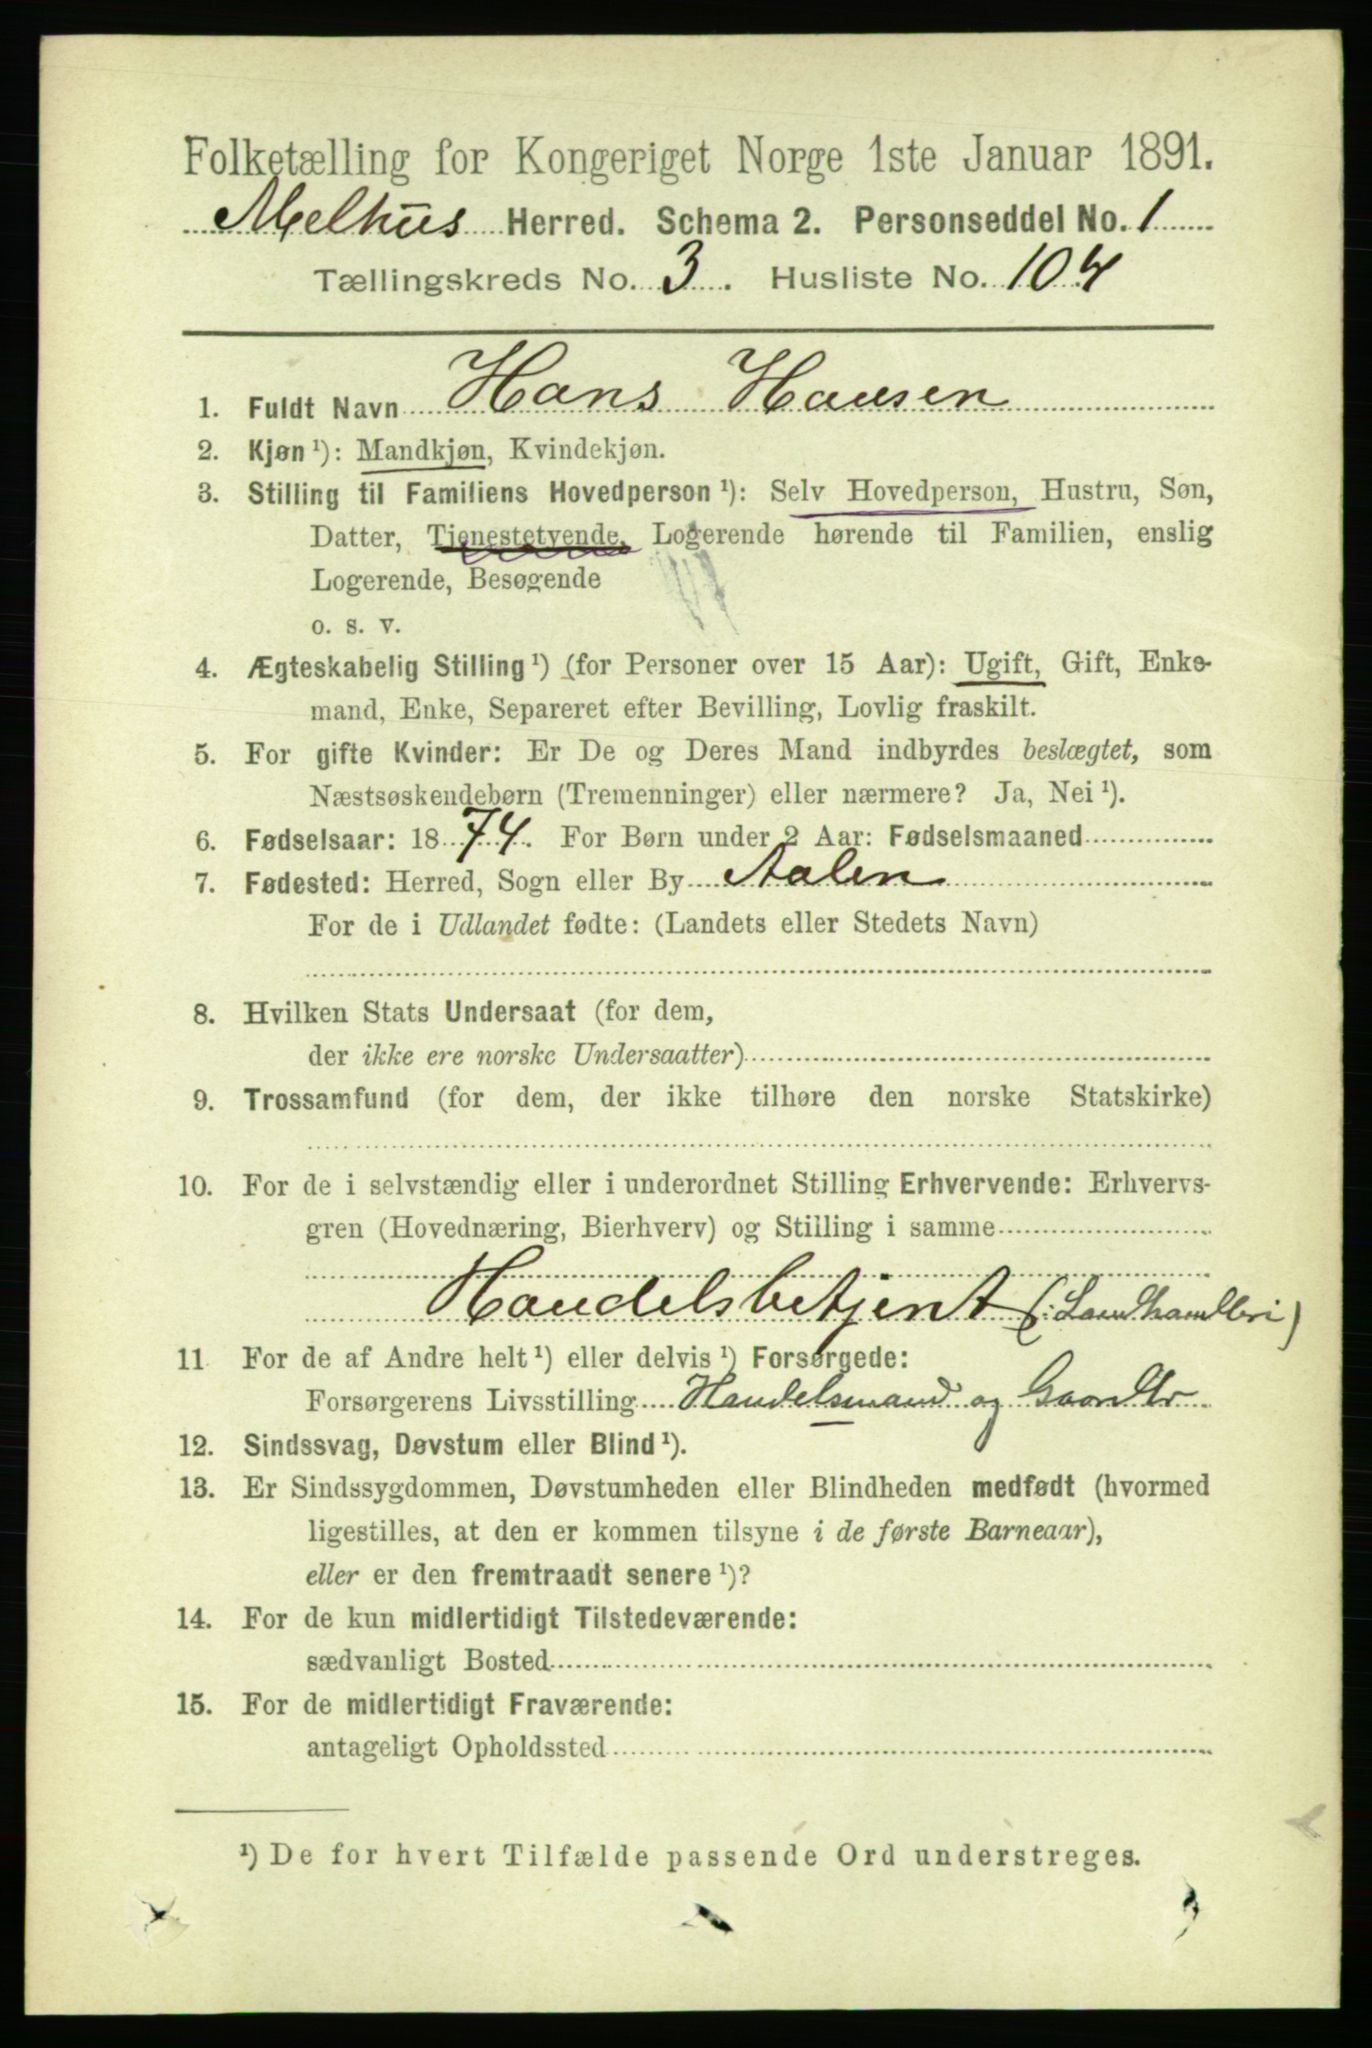 Folketælling for Kongeriget Norge 1ste Januar 1891.
Melhus Herred. Schema 2. Personseddel No. 1
Tællingskreds No. 3. Husliste No. 104
1. Fuldt Navn Hans Hansen
2. Kjøn ¹): Mandkjøn, Kvindekjøn.
3. Stilling til Familiens Hovedperson ¹): Selv Hovedperson, Hustru, Søn,
Datter, Tjenestetyende, Logerende hørende til Familien, enslig
Logerende, Besøgende
o. s. v.
4. Ægteskabelig Stilling ¹) (for Personer over 15 Aar): Ugift, Gift, Enke-
mand, Enke, Separeret efter Bevilling, Lovlig fraskilt.
5. For gifte Kvinder: Er De og Deres Mand indbyrdes beslægtet, som
Næstsøskendebørn (Tremenninger) eller nærmere? Ja, Nei ¹).
6. Fødselsaar: 1874. For Børn under 2 Aar: Fødselsmaaned
7. Fødested: Herred, Sogn eller By Aalen
For de i Udlandet fødte: (Landets eller Stedets Navn)
8. Hvilken Stats Undersaat (for dem,
der ikke ere norske Undersaatter)
9. Trossamfund (for dem, der ikke tilhøre den norske Statskirke)
10. For de i selvstændig eller i underordnet Stilling Erhvervende: Erhvervs-
gren (Hovednæring, Bierhverv) og Stilling i samme
Handelsbetjent (: Landhandleri)
11 For de af Andre helt ¹) eller delvis ¹) Forsørgede:
Forsørgerens Livsstilling Handelsmand og
12. Sindssvag, Døvstum eller Blind ¹).
13. Er Sindssygdommen, Døvstumheden eller Blindheden medfødt (hvormed
ligestilles, at den er kommen tilsyne i de første Barneaar),
eller er den fremtraadt senere ¹)?
14. For de kun midlertidigt Tilstedeværende:
sædvanligt Bosted
15. For de midlertidigt Fraværende:
antageligt Opholdssted
¹) De for hvert Tilfælde passende Ord understreges.